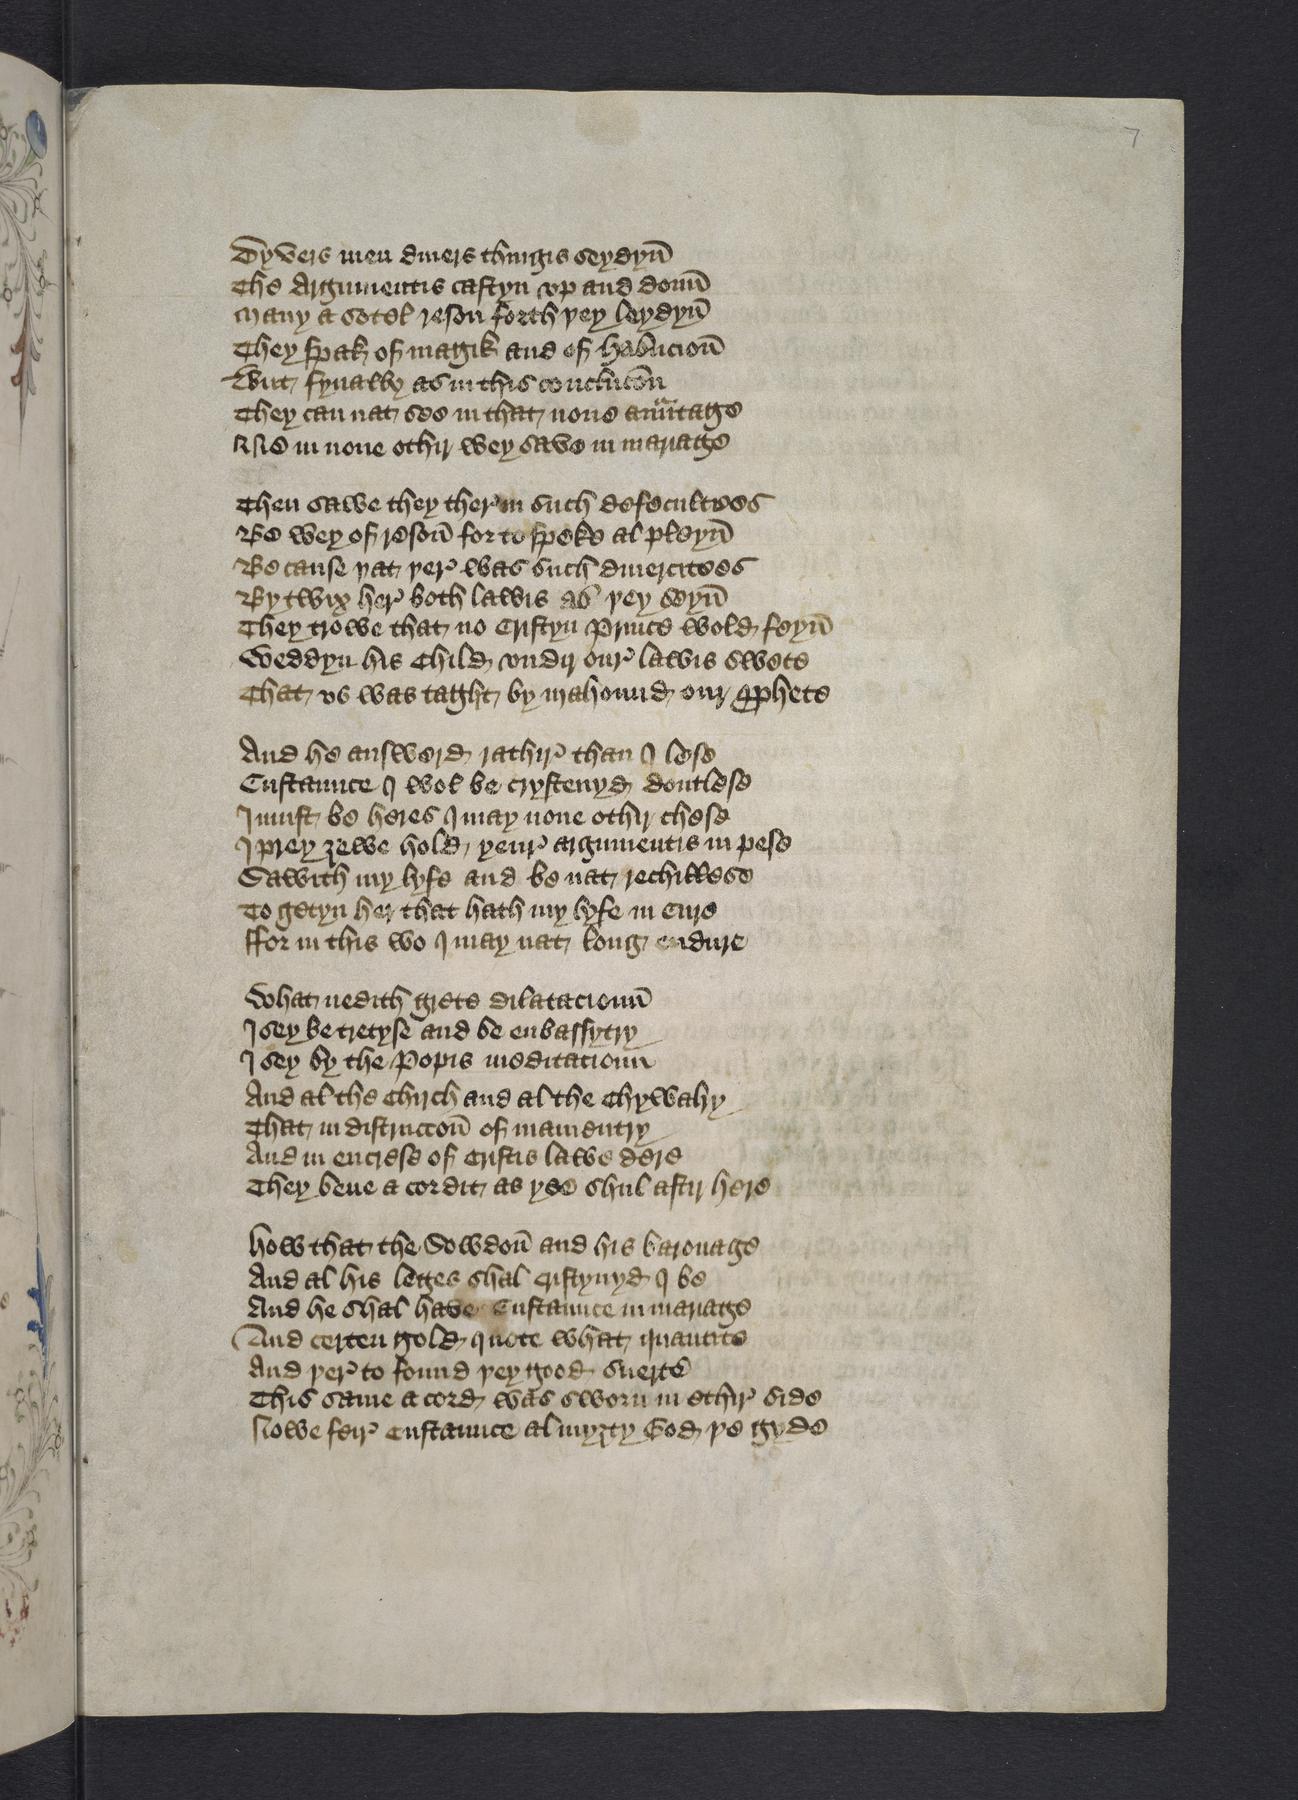 7
Dyvers men diuers thingis seydyn̄
The Argumentis castyn vp and doun̄
Many a sotel reson forth þey leydyn̄
They spak of magik and of habucion̄
But fynally as in this conclucōn
They can nat see in that none auãntage
Ne in none othir wey save in mariage
Then sawe they ther in such defecultees
Be wey of reson̄ for to speke al pleyn̄
Be cause þat þer was such diuercitees
By twix her both lawis as þey seyn̄
They trowe that no Cristyn Prince wold feyn̄
Weddyn his Child vndir our lawis swete
That vs was taght by Mahound our ꝓphete
And he answerd rathir than I lese
Custaunce I wol be crystenyd doutlese
I must be heres I may none othir chese
I prey ȝewe hold ȝour argumentis in pese
Savith my lyfe and be nat rechillese
To getyn her that hath my lyfe in Cure
ffor in this wo I may nat long endure
What nedith grete dilatacioun̄
I sey be tretyse and be enbassytry
I sey by the Popis meditacioun
And al the Chirch and al the Chyvalry
That in distruccon̄ of mamentry
And in encrese of Cristis lawe dere
They bene a cordit as yee shul aftir here
How that the Sowdon̄ and his baronage
And al his leges shal Cristynyd I be
And he shal have Custaunce in mariage
And certen gold I note what quantite
And þer to found þey good suerte
This same a cord was sworn in ethir side
Nowe feir Custaunce almyȝty God þe gyde